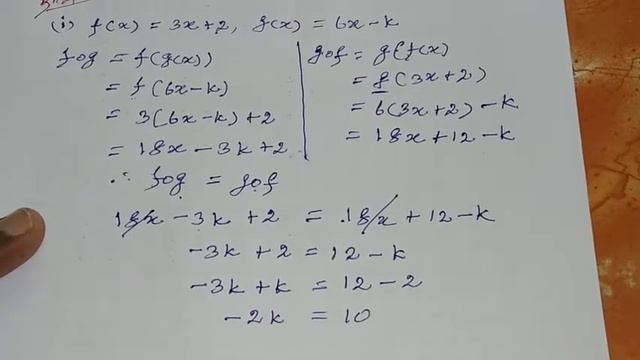 (i) f(x) = 3x+2, g(x) = 6x-k
fog = f(g(x))
= f(6x-k)
= 3(6x-k)+2
= 18x - 3k+2
gof = g(f(x)
= g(3x+2)
= 6(3x+2) - k
= 18x+12-k
∴ fog = gof
18x - 3k + 2 = 18x + 12 - k
-3k + 2 = 12 - k
-3k + k = 12 - 2
-2k = 10